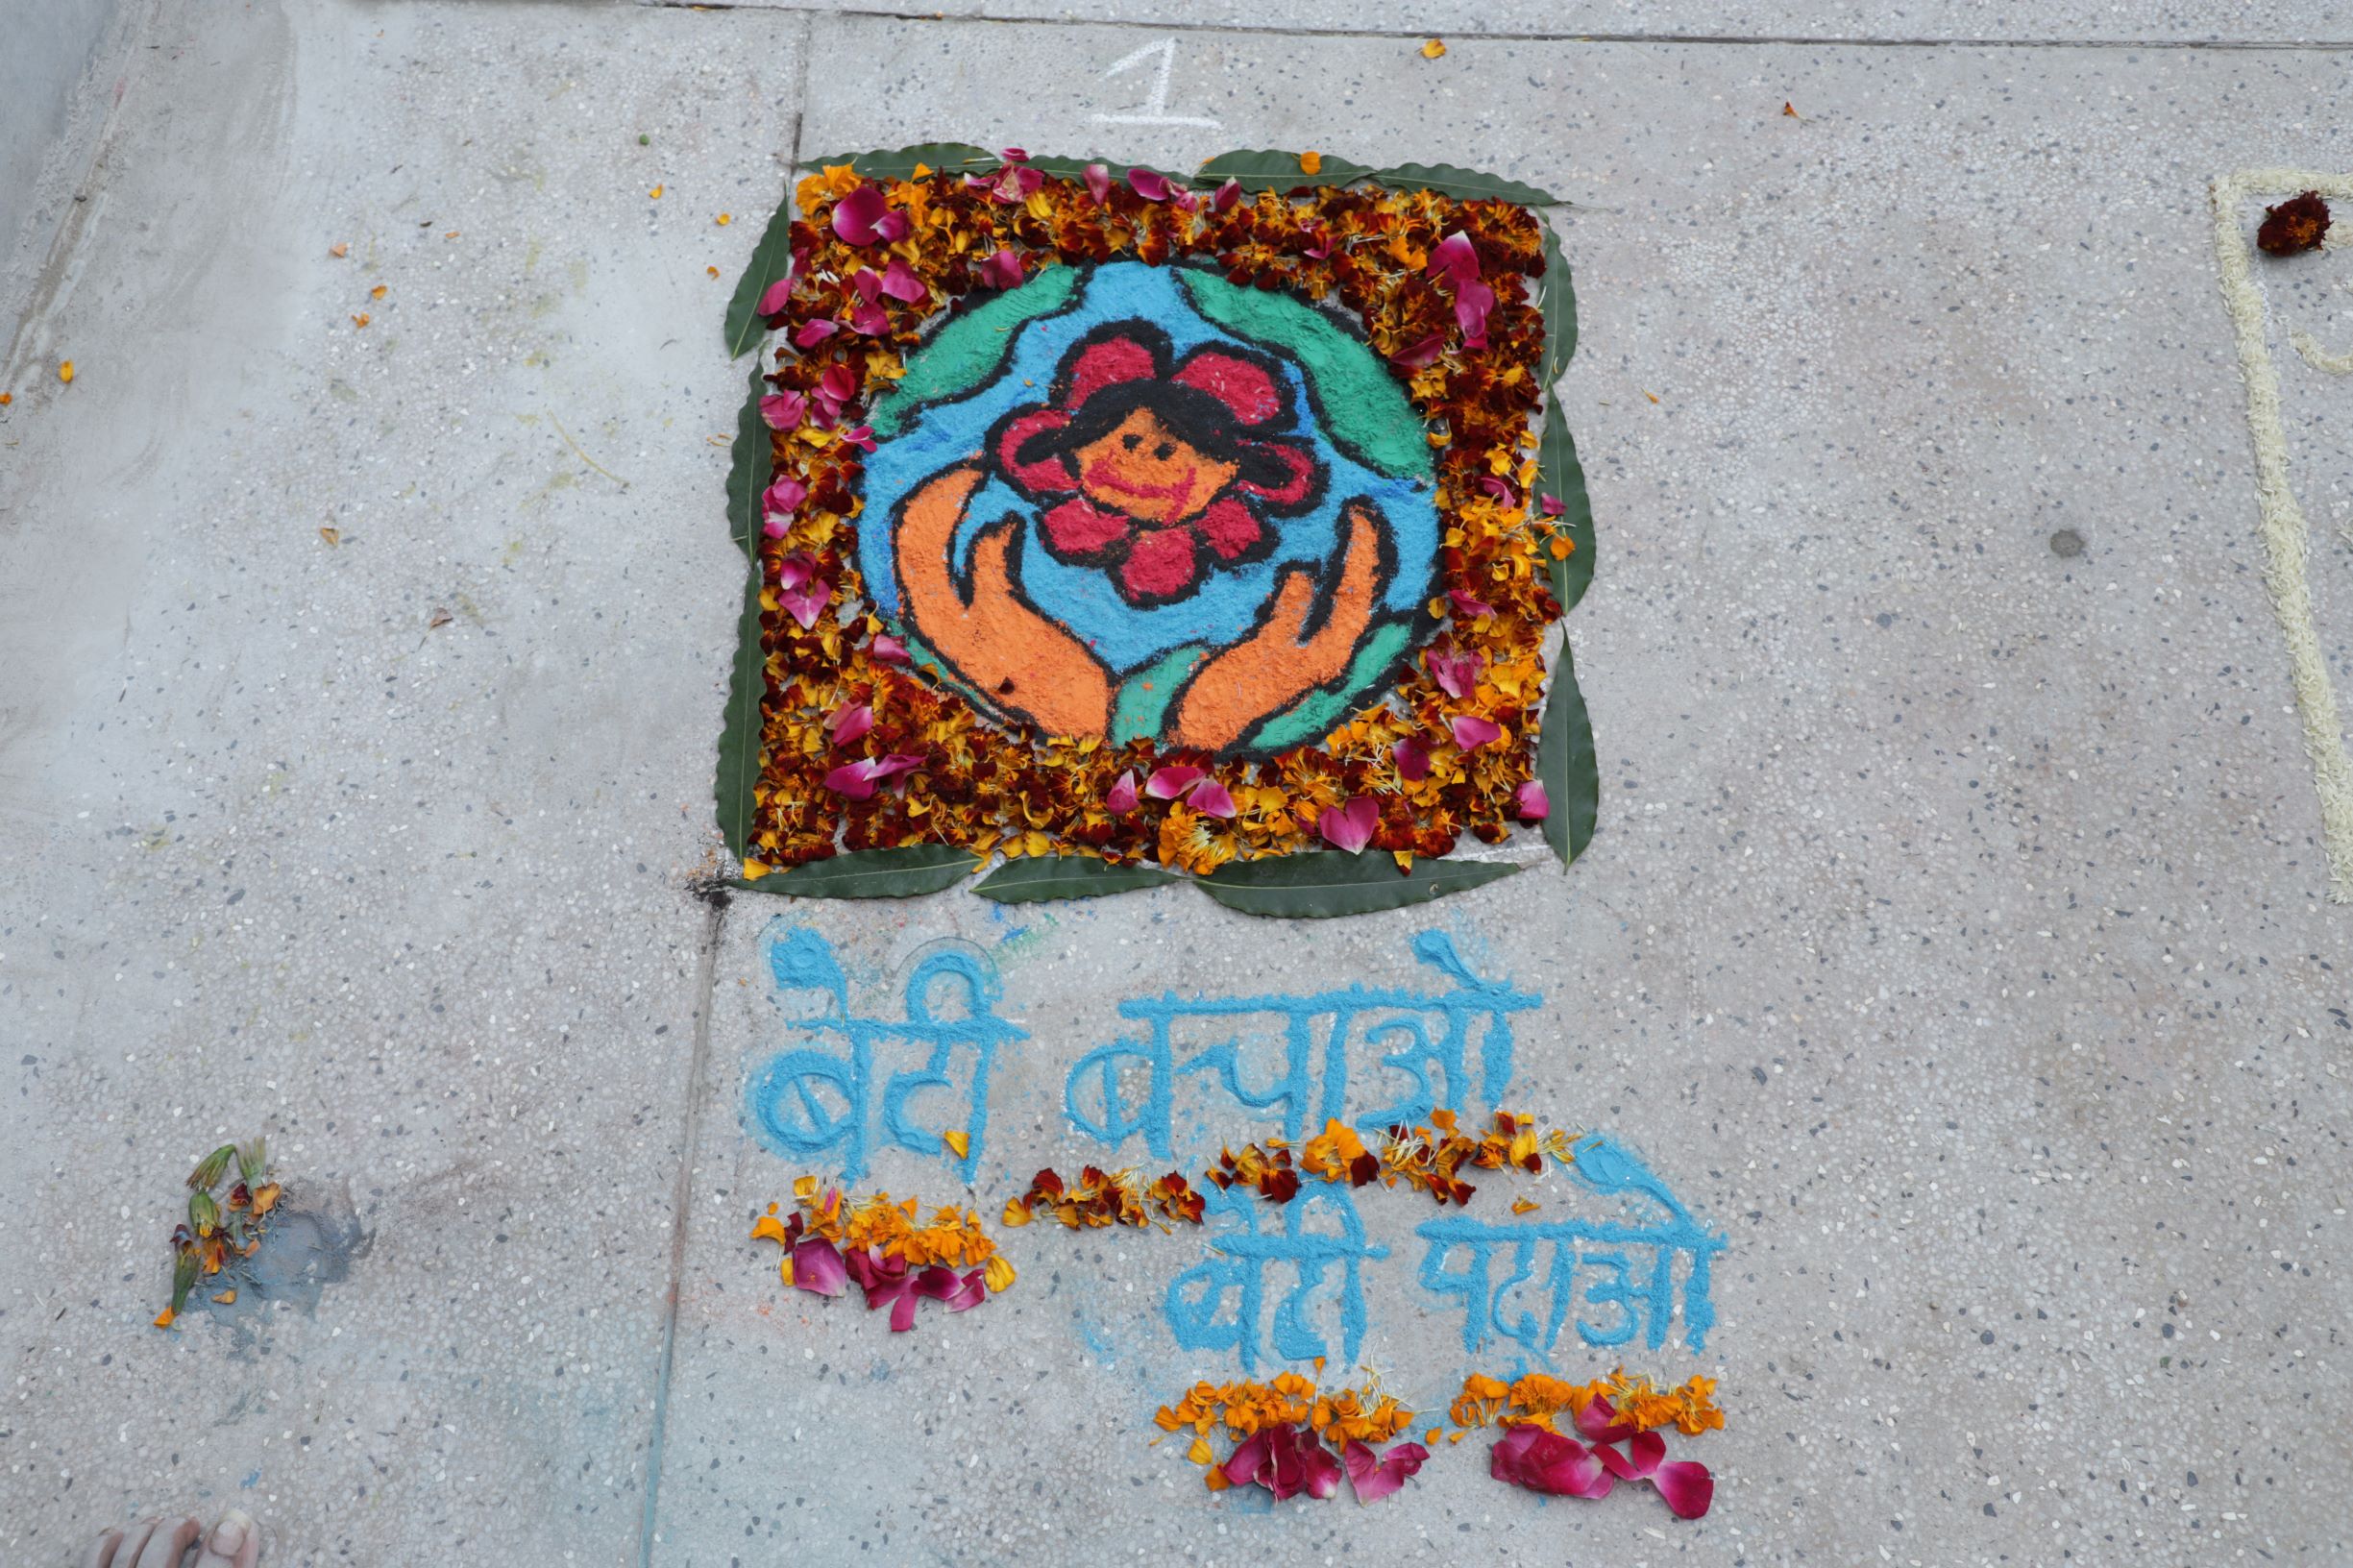 1
बेटी बचाओ
बेटी पढ़ाओ